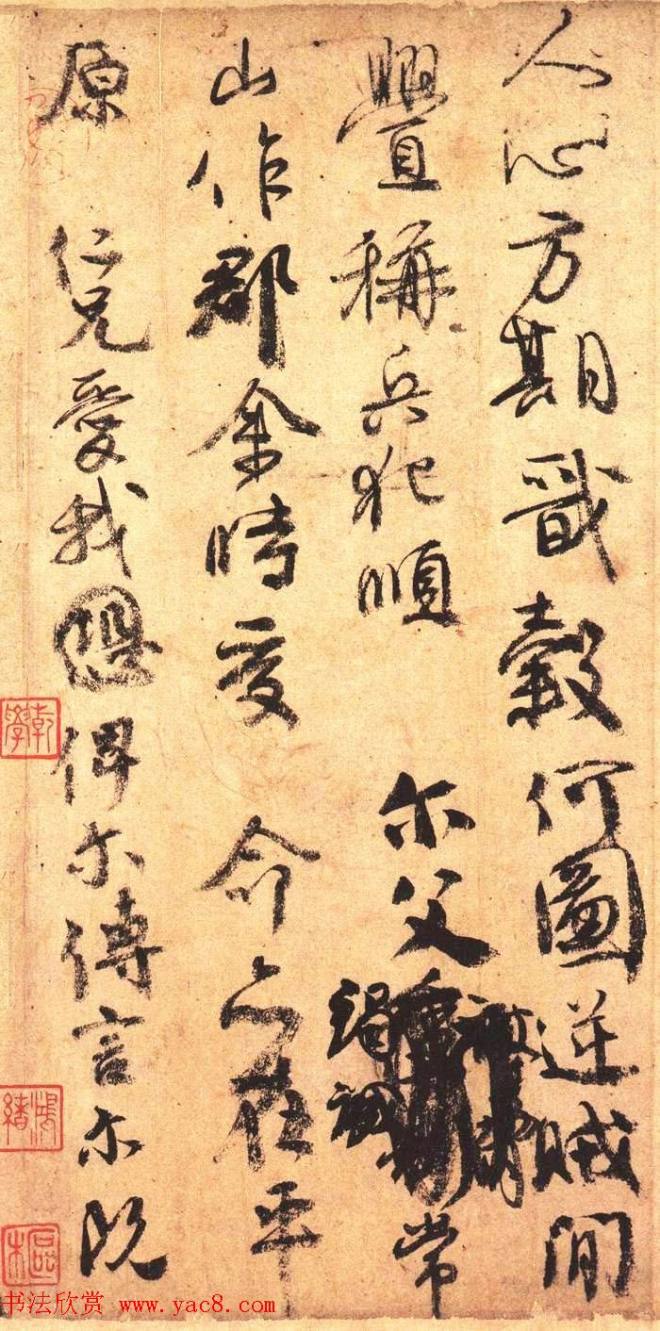 人心方期戩穀何圖逆賊閒
釁稱兵犯順尓父竭誠常
山作郡余時受命亦在平
原仁兄愛我俾尓傳言尓既
书法欣赏 www.yac8.com